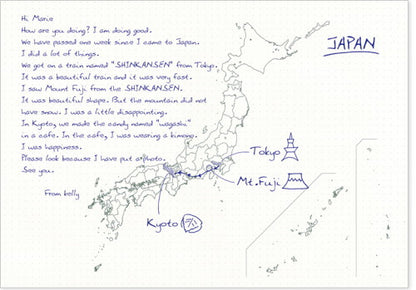 Hi Marie
How are you doing? I am doing good.
We have passed one week since I came to Japan.
I did a lot of things.
We got on a train named "SHINKANSEN" from Tokyo.
It was a beautiful train and it was very fast.
I saw Mount Fuji from the SHINKANSEN.
It was beautiful shape. But the mountain did not
have snow. I was a little disappointing.
In Kyoto, we made the candy named "wagashi"
in a cafe. In the cafe, I was wearing a kimono.
I was happiness.
Please look because I have put a photo.
See you.
From belly
JAPAN
Tokyo
Mt.Fuji
Kyoto